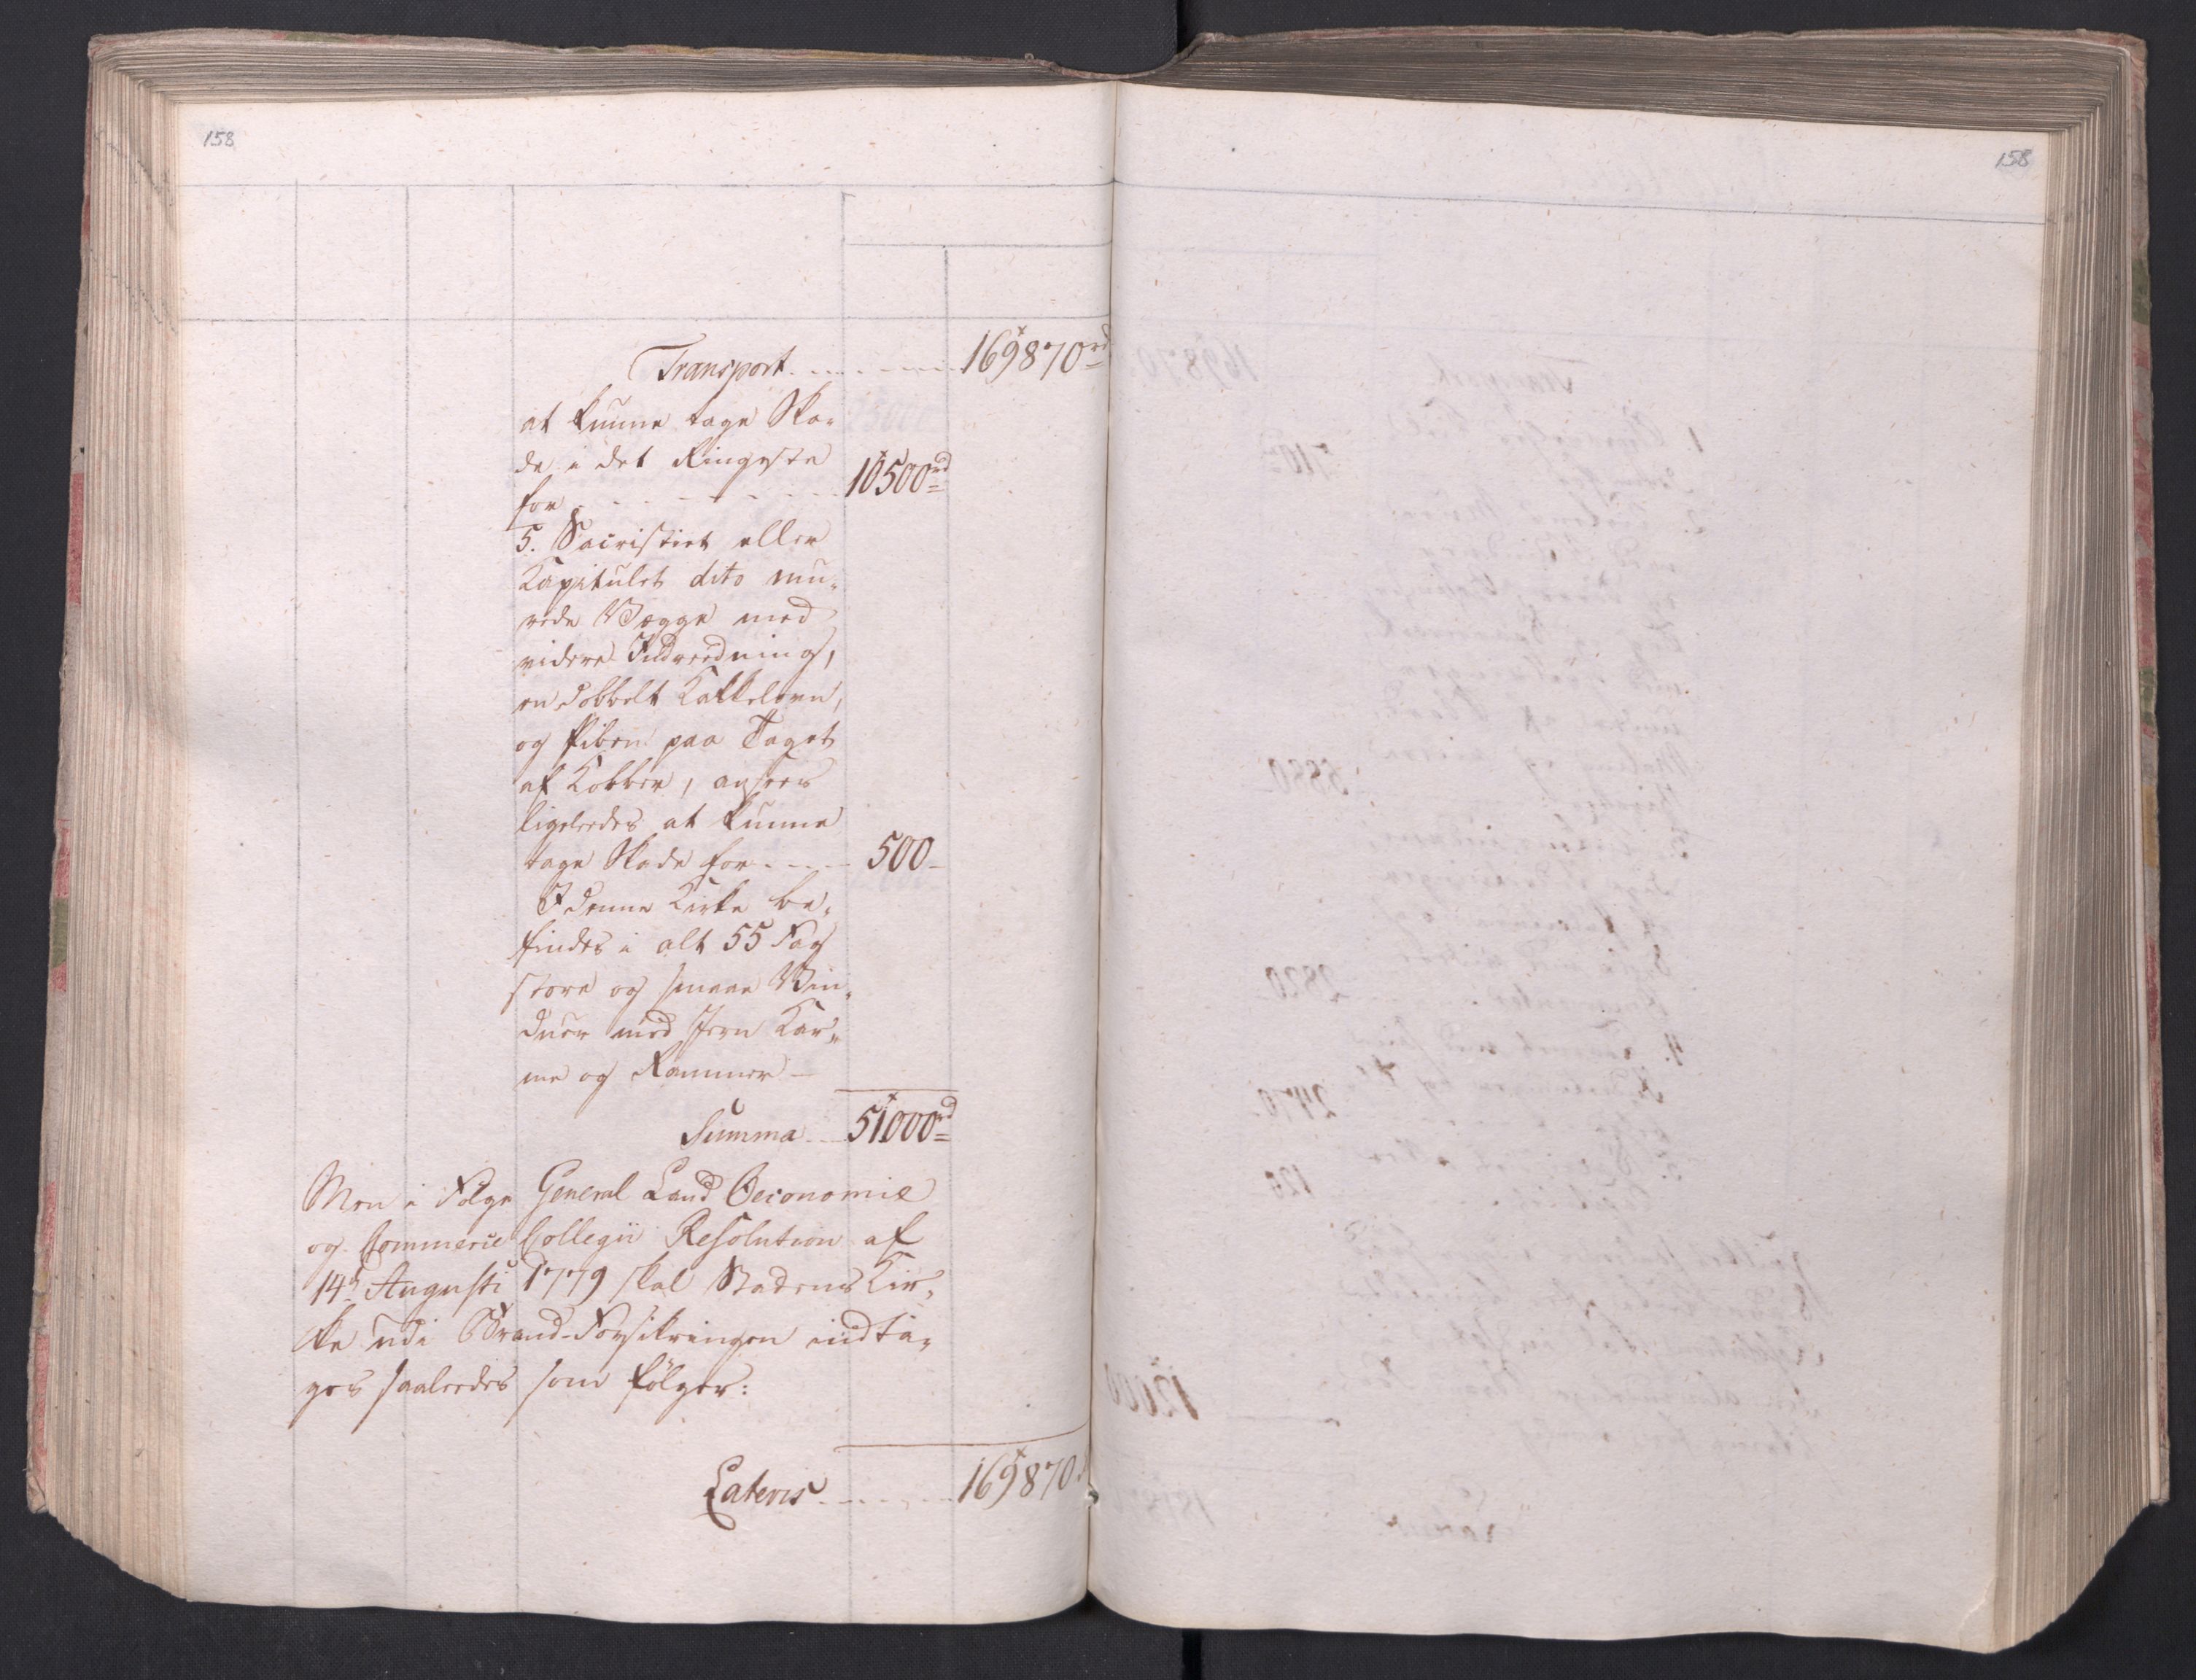 158
Transport 169870rd
at kunne tage Ska-
de i det Ringeste
for 10500rd
5. Sacristiet eller
Kapitulet dito mu-
rede Vægge med
videre Indreedning,
en dobbelt Kakkelovn,
og Piben paa Taget
af Kobber, ansees
ligeleedes at kunne
tage Skade for 500
I denne Kirke be-
findes i alt 55 Fag
store og smaae Vin-
duer med Jern Kar-
me og Rammer
Summa 51000rd
Men i Følge General Land Oeconomie
og Commerce Collegii Resolution af
14d Augusti 1779 skal Stadens Kir-
ke udi Brand-Forsikringen indta-
ges saaleedes som følger:
Lateris 169870
158